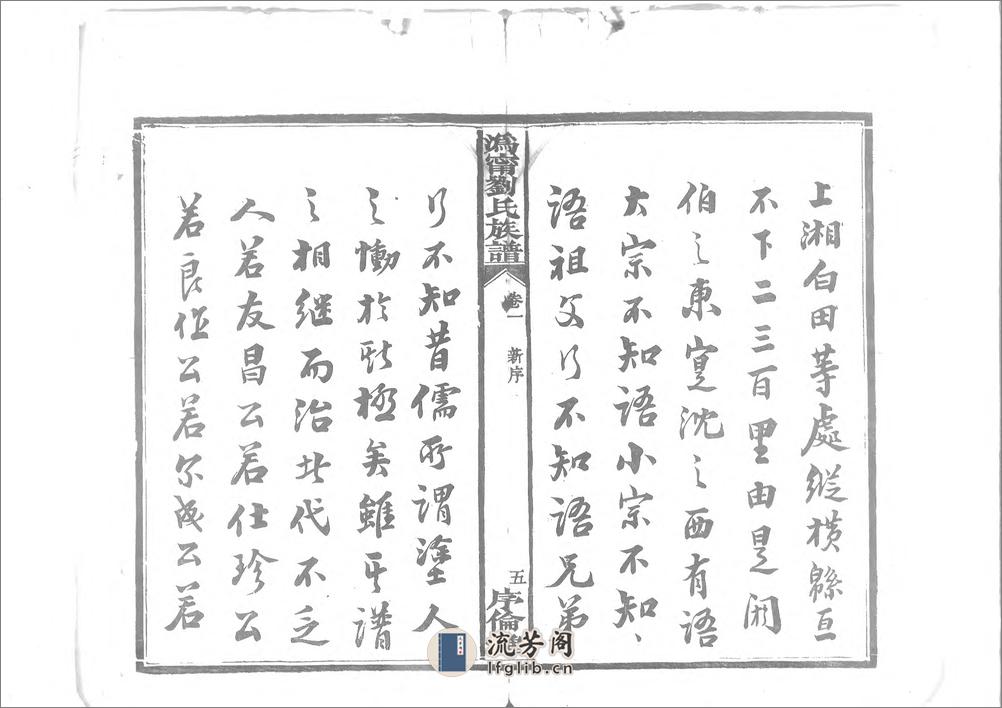 上湘白田等處縱橫緜亘
不下二三百里由是閼
伯之東寔沈之西有語
大宗不知語小宗不知、
語祖父行不知語兄弟
溈甯劉氏族譜
卷一
新序
五
序倫
行不知昔儒所謂塗人
之慟於斯極矣雖其譜
之相継而治代不乏
人若友昌公若仕珍公
若良公若尔成公若
流芳阁
lfglib.cn